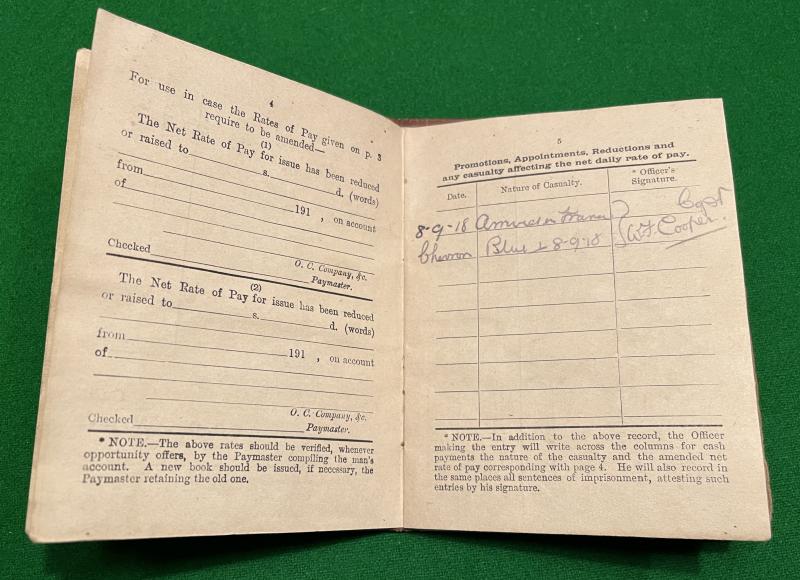 4
For use in case the Rates of Pay given on p. 3
require to be amended—
(1)
The Net Rate of Pay for issue has been reduced
or raised to s. d. (words)
from 191 , on account
of
Checked
O. C. Company, &c.
Paymaster.
(2)
The Net Rate of Pay for issue has been reduced
or raised to s. d. (words)
from 191 , on account
of
O. C. Company, &c.
Checked Paymaster.
* NOTE.—The above rates should be verified, whenever
opportunity offers, by the Paymaster compiling the man's
account. A new book should be issued, if necessary, the
Paymaster retaining the old one.
5
Promotions, Appointments, Reductions and
any casualty affecting the net daily rate of pay.
Date. Nature of Casualty. * Officer's
Signature.
8-9-18 Arrived in France Capt
Chevron Blue 1 8-9-18 W.F. Cooper.
* NOTE.—In addition to the above record, the Officer
making the entry will write across the columns for cash
payments the nature of the casualty and the amended net
rate of pay corresponding with page 4. He will also record in
the same places all sentences of imprisonment, attesting such
entries by his signature.